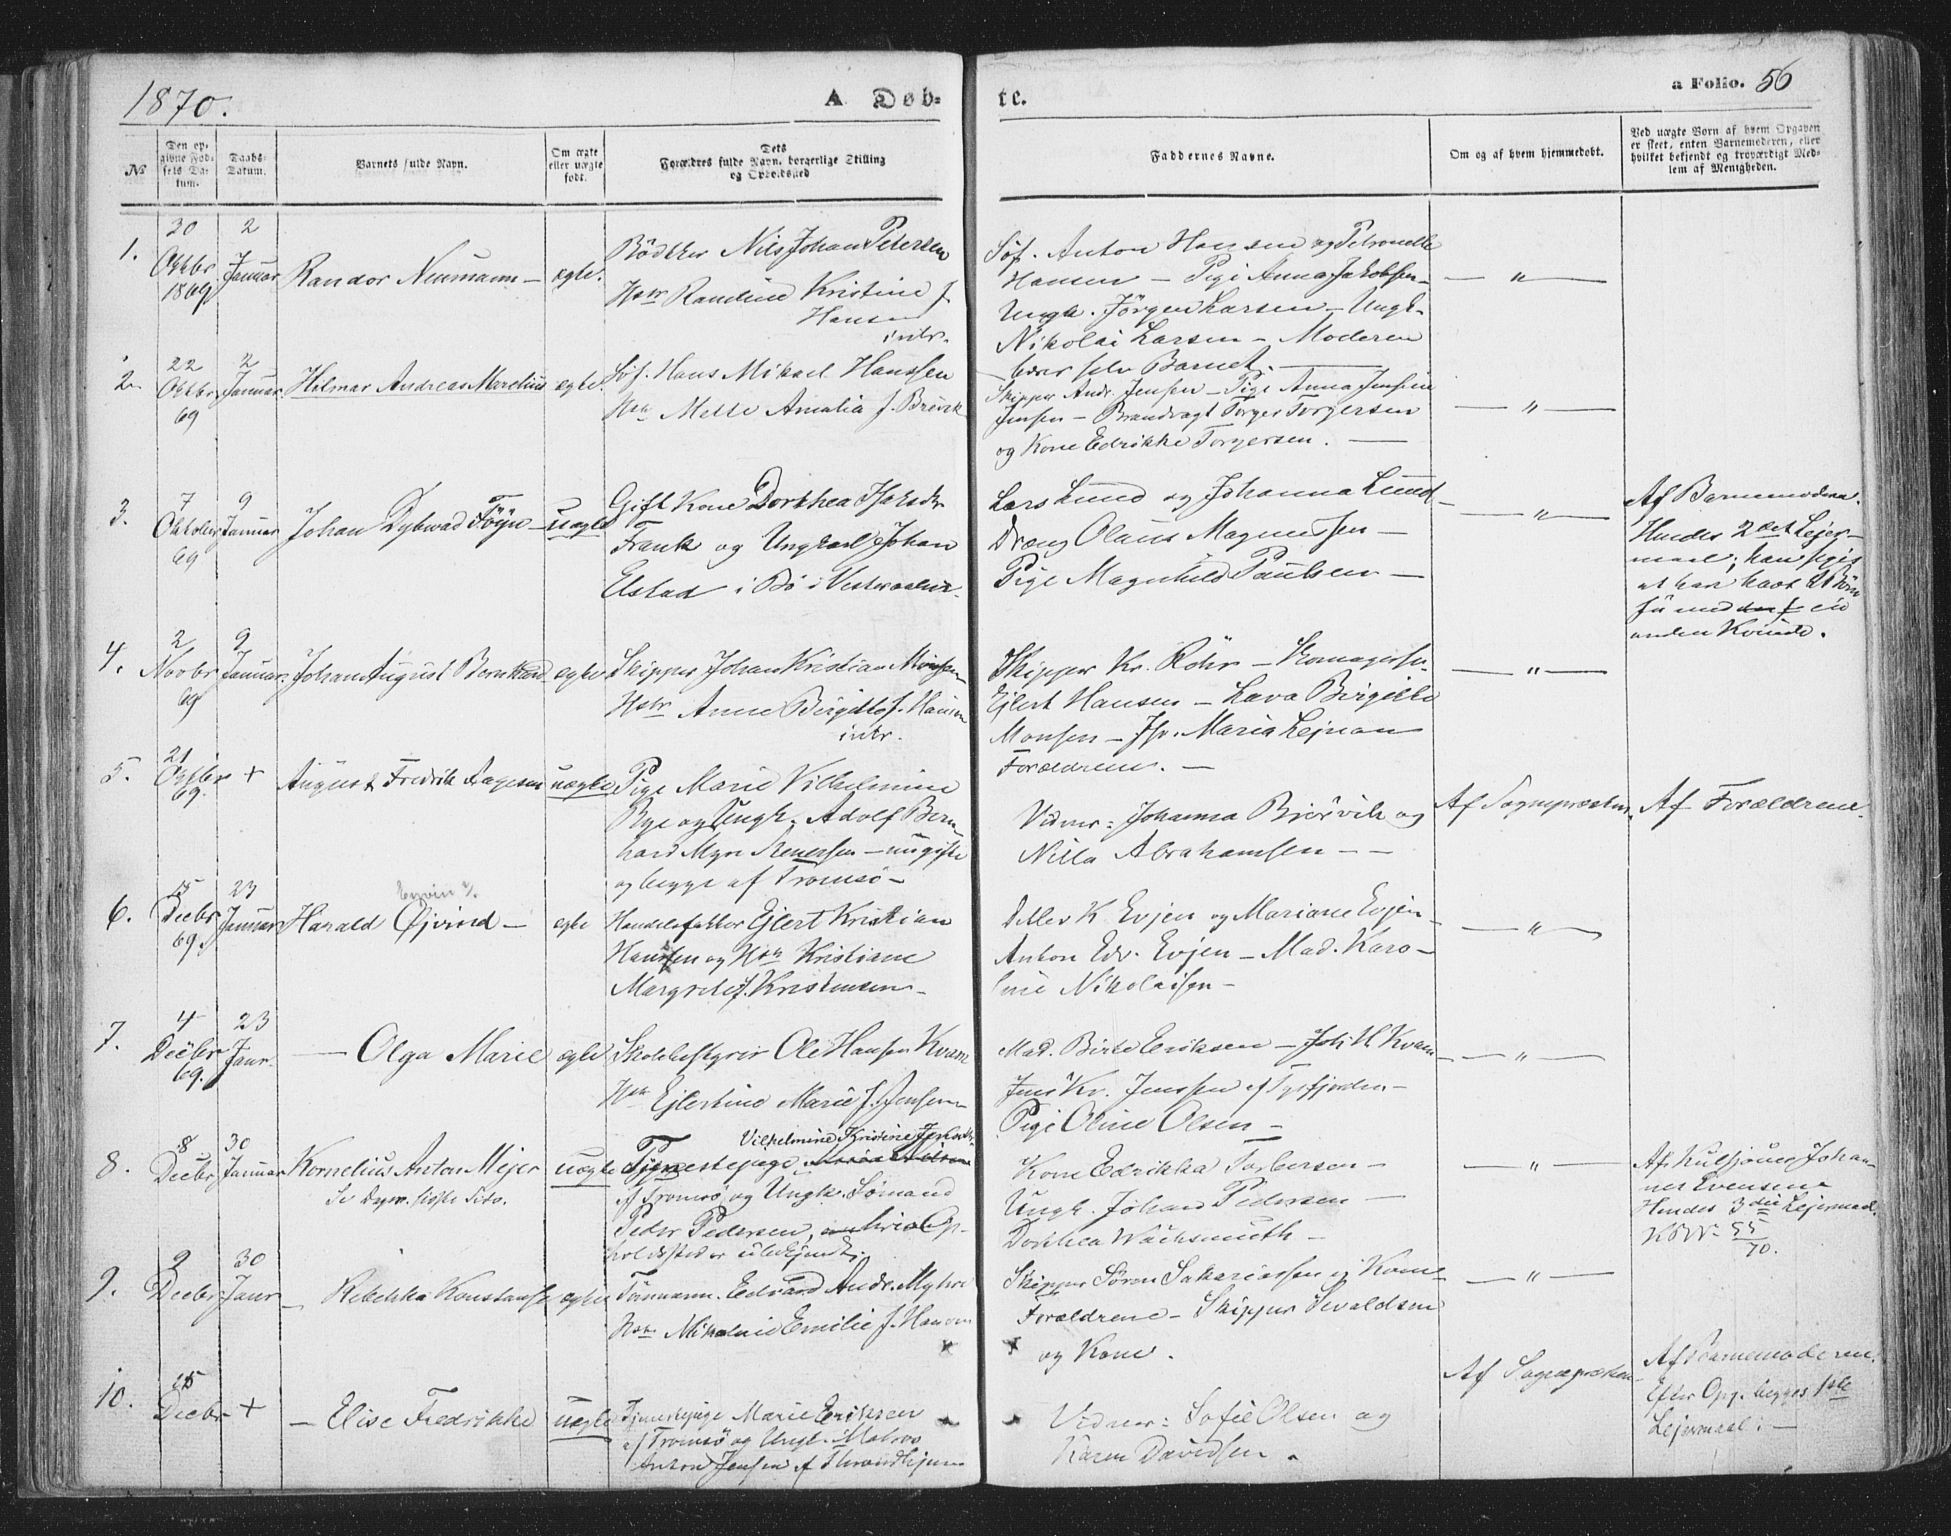 1870.
A Døb-
te.
a Folio. 56
No
Den op-
givne Fød-
sels Da-
tum.
Daabs-
Datum.
Barnets fulde Navn.
Om ægte
eller uægte
født.
Dets
Forældres fulde Navn, borgerlige Stilling
og Opholdssted
Faddernes Navne.
Om og af hvem hjemmedøbt.
Ved uægte Børn af hvem Opgaven
er skeet, enten Barnemoderen, eller
hvilket bekjendt og troværdigt Med-
lem af Menigheden.
1.
30
Oktbr
1869
2
Januar
Randor Neumann —
ægte.
Bödker Nils Johan Petersen
Hstr Randine Kristine f.
Hansen
intr.
Söf. Anton Hansen og Petronelle
Hansen — Pige Anna Jakobsen —
Ungk. Jörgen Larsen — Ungk.
Nikolai Larsen — Moderen
bærer selv Barnet. —
— " —
2.
22
Oktbr
69
2
Januar
Hilmar Andreas Marelius
ægte.
Söf. Hans Mikael Hanssen
Hstr Mette Amalia f. Brevik
Skipper Andr. Jensen — Pige Anna Jensine
Jensen — Brandvagt Torger Torgersen
og Kone Edrikke Torgersen. —
— " —
3.
7
Oktober
69
9
Januar
Johan Dybwad Föyn —
uægte
Gift Kone Dorthea
Frank og Ungkarl Johan
Elstad i Bö i Vesteraalen.
Lars Lund og Johanna Lund —
Dreng Olaus Magnussen —
Pige Magnhild Paulsen —
— " —
Af Barnemoderen.
Hendes 2det Lejer-
maal; han siges
at have havt 2 Börn
för med en
anden Kvinde.
4.
2
Novbr
69
9
Januar.
Johan August Bernhard
ægte
Skipper Johan Kristian Monsen
Hstr Anne Birgitte f. Hansen
intr.
Skipper Kr. Röhr —
Ejlert Hansen — Lava Birgitte
Monsen — Jfr. Maria Lejman
Forældrene. —
— " —
5.
21
Oktbr
69.
+
August Fredrik Aagesen
uægte
Pige Marie Vilhelmine
Bye og Ungk. Adolf Bern-
hard Myre — ugifte
og begge af Tromsö —
Vidner: Johanna Bjerkvik og
Nilla Abrahamsen — —
Af Sognepræsten.
Af Forældrene.
6.
15
Decbr
69.
23
Januar
Eyvin
Harald Øjvind —
ægte
Handelsfaktor Ejlert Kristian
Hanssen og Hstr Kristiane
Margrete f. Kristensen —
Detlev K Evjen og Mariane Evjen —
Anton Edv. Evjen — Mad. Karo-
line Nikolaisen —
— " —
7.
4
Decbr
69.
23
Janr.
— Olga Marie
ægte
Skolebestyrer Ole Hansen Kvam
Hstr Ejlertine Marie f. Jensen
Mad. Birte Eriksen — Joh. H. Kvam —
Jens Kr. Jenssen af Tysfjorden —
Pige Oline Olsen —
— " —
8.
8
Decbr
30
Januar
Kornelius Anton Mejer
Se Dapr. sidste Side.
uægte
Vilhelmine Kristine
Tjenestepige
af Tromsö og Ungk. Sömand
Peder Pedersen, hvis Op-
holdssted er ubekjendt.
Kone Edrikka Torbersen —
Ungk. Johan Pedersen —
Dorthea Wachsmuth —
— " —
Johan-
nes Evensen
Hendes 3die Lejermaal.
55
70.
9.
9
Decbr
30
Janr
— Rebekka Konstanse
ægte
Tömmann. Edvard Andr. Myhre
Hstr Mikaline Emilie f. Hansen
Skipper Sören Sakariassen og Kone —
Forældrene — Skipper Sivaldsen
og Kone.
— " —
10.
25
Decbr
+
— Elise Fredrikke
uægte
Tjenestepige Marie Eriksen
af Tromsö og Ungk. Matros
Anton Jensen af Throndhjem
Vidner: Sofie Olsen og
Karen Davidsen.
Af Sognepræsten
Af Barnemoderen.
Efter Opg. begges 1ste
Lejermaal. —